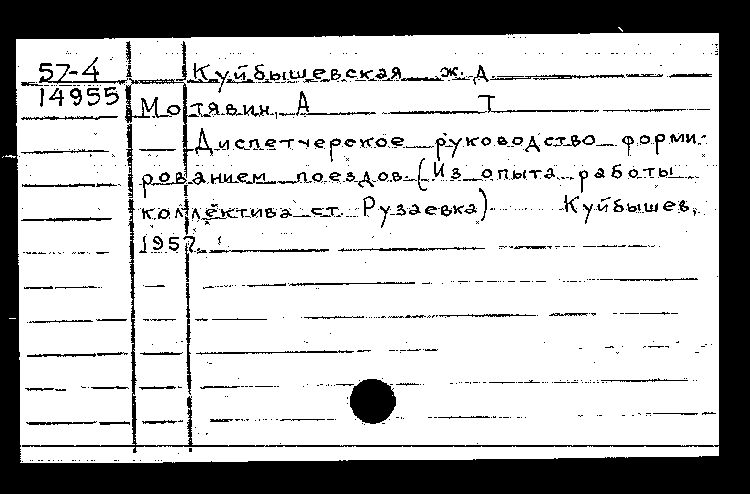 57-4 Куйбышевская ж. д.
14955 Мотявин, А Т
Диспетчерское руководство форми-
рованием поездов (Из опыта работы
коллектива ст. Рузаевка) Куйбышев,
1957.